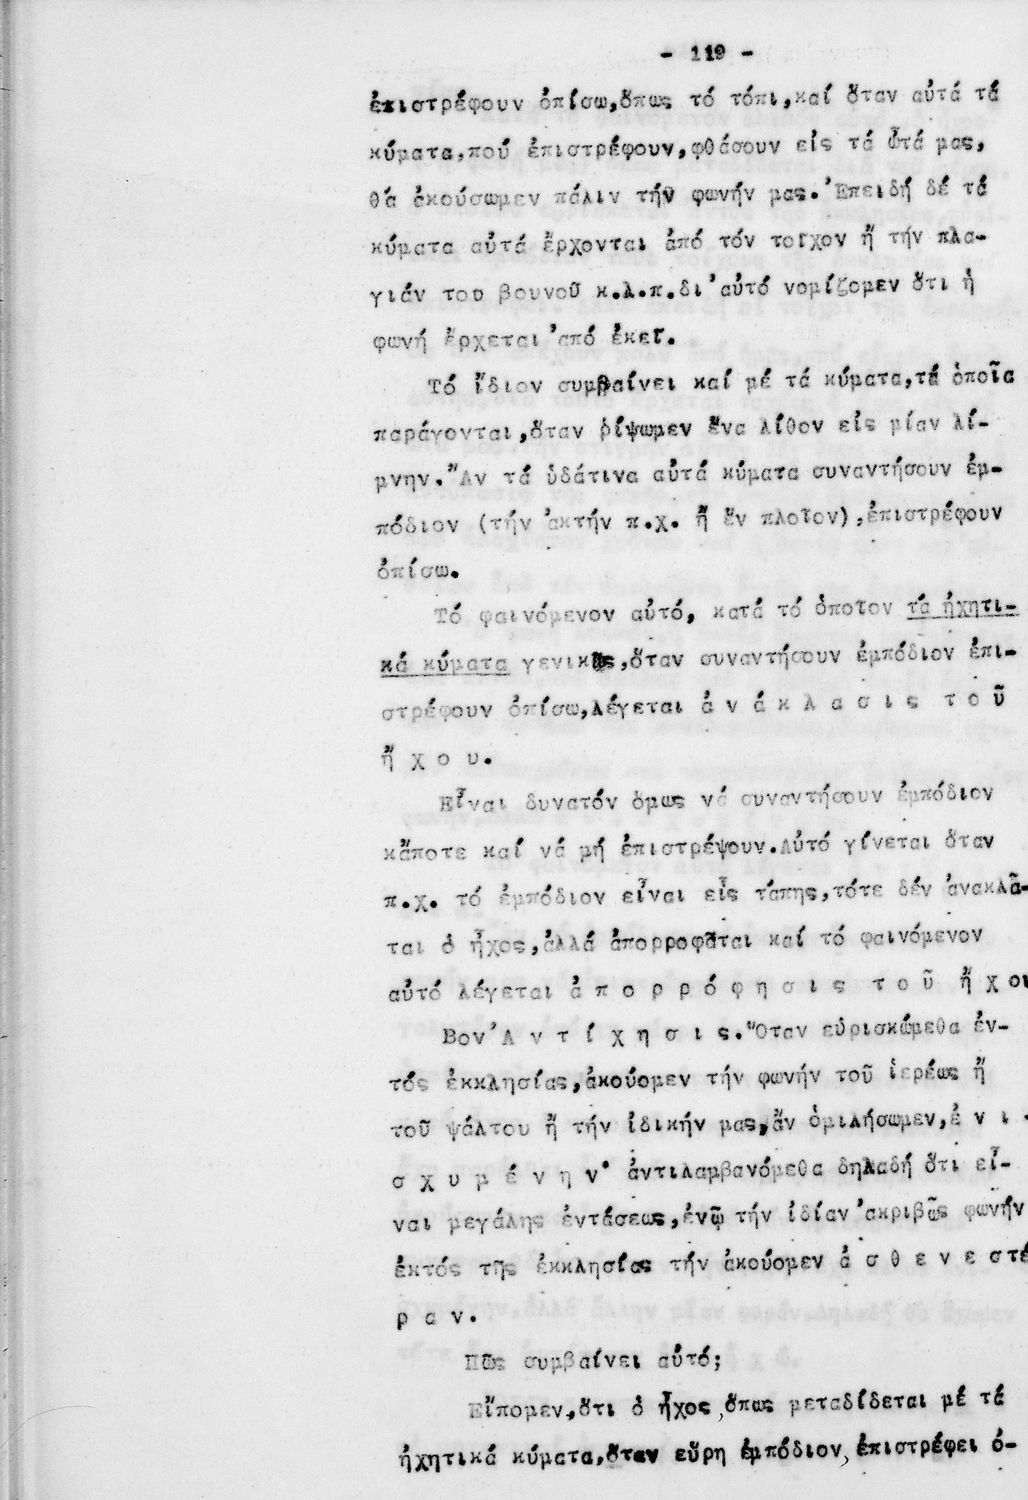 - 119 -
ἐπιστρέφουν ὀπίσω,ὅπως τό τόπι,καί ὅταν αὐτά τά
κύματα,πού ἐπιστρέφουν,φθάσουν εἰς τά ὦτά μας,
θά ἀκούσωμεν πάλιν τήν φωνήν μας.Ἐπειδή δέ τά
κύματα αὐτά ἔρχονται ἀπό τόν τοῖχον ἤ τήν πλα-
γιάν του βουνοῦ κ.λ.π.δι'αὐτό νομίζομεν ὅτι ἡ
φωνή ἔρχεται ἀπό ἐκεῖ.
Τό ἴδιον συμβαίνει καί μέ τά κύματα,τά ὁποῖα
παράγονται,ὅταν ρίψωμεν ἕνα λίθον εἰς μίαν λί-
μνην.Ἄν τά ὑδάτινα αὐτά κύματα συναντήσουν ἐμ-
πόδιον (τήν ἀκτήν π.χ. ἤ ἕν πλοῖον),ἐπιστρέφουν
ὀπίσω.
Τό φαινόμενον αὐτό, κατά τό ὁποῖον τά ἠχητι-
κά κύματα γενικῶς,ὅταν συναντήσουν ἐμπόδιον ἐπι-
στρέφουν ὀπίσω,λέγεται ἀ ν ά κ λ α σ ι ς τ ο ῦ
ἤ χ ο υ.
Εἶναι δυνατόν ὅμως νά συναντήσουν ἐμπόδιον
κἄποτε καί νά μή ἐπιστρέψουν.Αὐτό γίνεται ὅταν
π.χ. τό ἐμπόδιον εἶναι εἷς τάπης,τότε δέν ἀνακλᾶ-
ται ὁ ἦχος,ἀλλά ἀπορροφᾶται καί τό φαινόμενον
αὐτό λέγεται ἀ π ο ρ ρ ό φ η σ ι ς τ ο ῦ ἤ χ ου
Βον'Α ν τ ί χ η σ ι ς.Ὅταν εὑρισκώμεθα ἐν-
τός ἐκκλησίας,ἀκούομεν τήν φωνήν τοῦ ἱερέως ἤ
τοῦ ψάλτου ἤ τήν ἰδικήν μας,ἄν ὁμιλήσωμεν,ἐ ν ι -
σ χ υ μ έ ν η ν· ἀντιλαμβανόμεθα δηλαδή ὅτι εἶ-
ναι μεγάλης ἐντάσεως,ἐνῷ τήν ἰδίαν ἀκριβῶς φωνήν
ἐκτός τῆς ἐκκλησίας τήν ἀκούομεν ἀ σ θ ε ν ε σ τέ
ρ α ν.
Πῶς συμβαίνει αὐτό;
Εἴπομεν,ὅτι ὁ ἦχος,ὅπως μεταδίδεται μέ τά
ἠχητικά κύματα,ὅταν εὕρη ἐμπόδιον,ἐπιστρέφει ὀ-